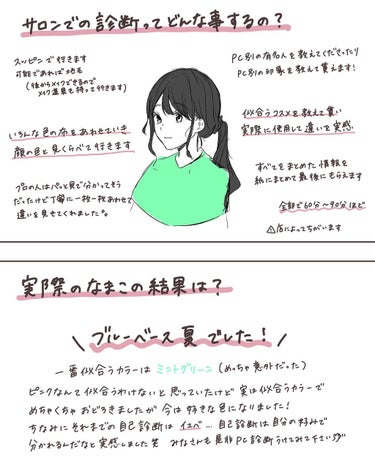 サロンでの診断ってどんな事するの？
スッピンで行きます
可能であれば地毛
(後からメイクできるので
メイク道具も持って行きます)
いろんな色の布をあわせていき
顔の色と見くらべて行きます
プロの人はパッと見で分かってそう
だったけど丁寧に一枚一枚あわせて
違いを見せてくれました。
PC別の有名人を教えてくださったり
PC別の印象を教えて貰えます！
似合うコスメを教えて貰い
実際に使用して違いを実感
すべてをまとめた情報を
紙にまとめて最後にもらえます
全部で60分〜90分ほど
⚠店によってちがいます
実際のなまこの結果は？
\ ブルーベース夏でした！ /
一番似合うカラーは ミントグリーン (めっちゃ意外だった)
ピンクなんて似合うわけないと思っていたけど 実は似合うカラーで
めちゃくちゃおどろきましたが 今は好きな色になりました！
ちなみにそれまでの自己診断は イエベ… 自己診断は自分の好みで
分かれるんだなと実感しました笑 みなさんも是非PC診断うけてみて下さい